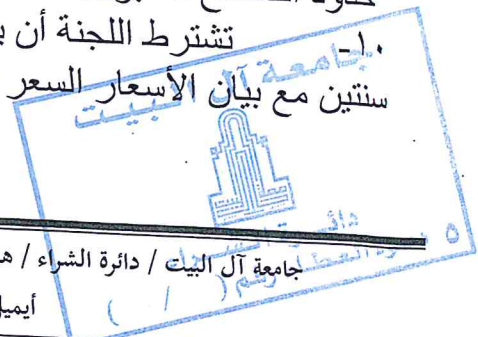 تشترط اللجنة أن
١٠-
سنتين مع بيان الأسعار السعر
جامعة آل البيت
دائرة الشراء
جامعة آل البيت / دائرة الشراء / ه
أيميل
( / )